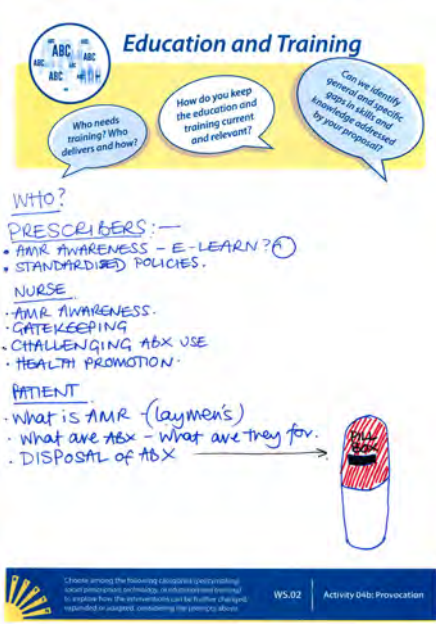 ABC
ABC
ABC
ABC
Education and Training
Who needs
training? Who
delivers and how?
How do you keep
the education and
training current
and relevant?
Can we identify
general and specific
gaps in skills and
knowledge addressed
by your proposal?
WHO?
PRESCRIBERS:—
• AMR AWARENESS - E-LEARN?
• STANDARDISED POLICIES.
NURSE
• AMR AWARENESS.
• GATEKEEPING
• CHALLENGING ABX USE
• HEALTH PROMOTION.
PATIENT
• What is AMR - (laymen's)
• What are ABX - What are they for.
• DISPOSAL of ABX
PILL
BOX
Choose among the following categories
to explore how the interventions can be further changed,
expanded or adapted, considering the prompts above
WS.02
Activity 04b: Provocation